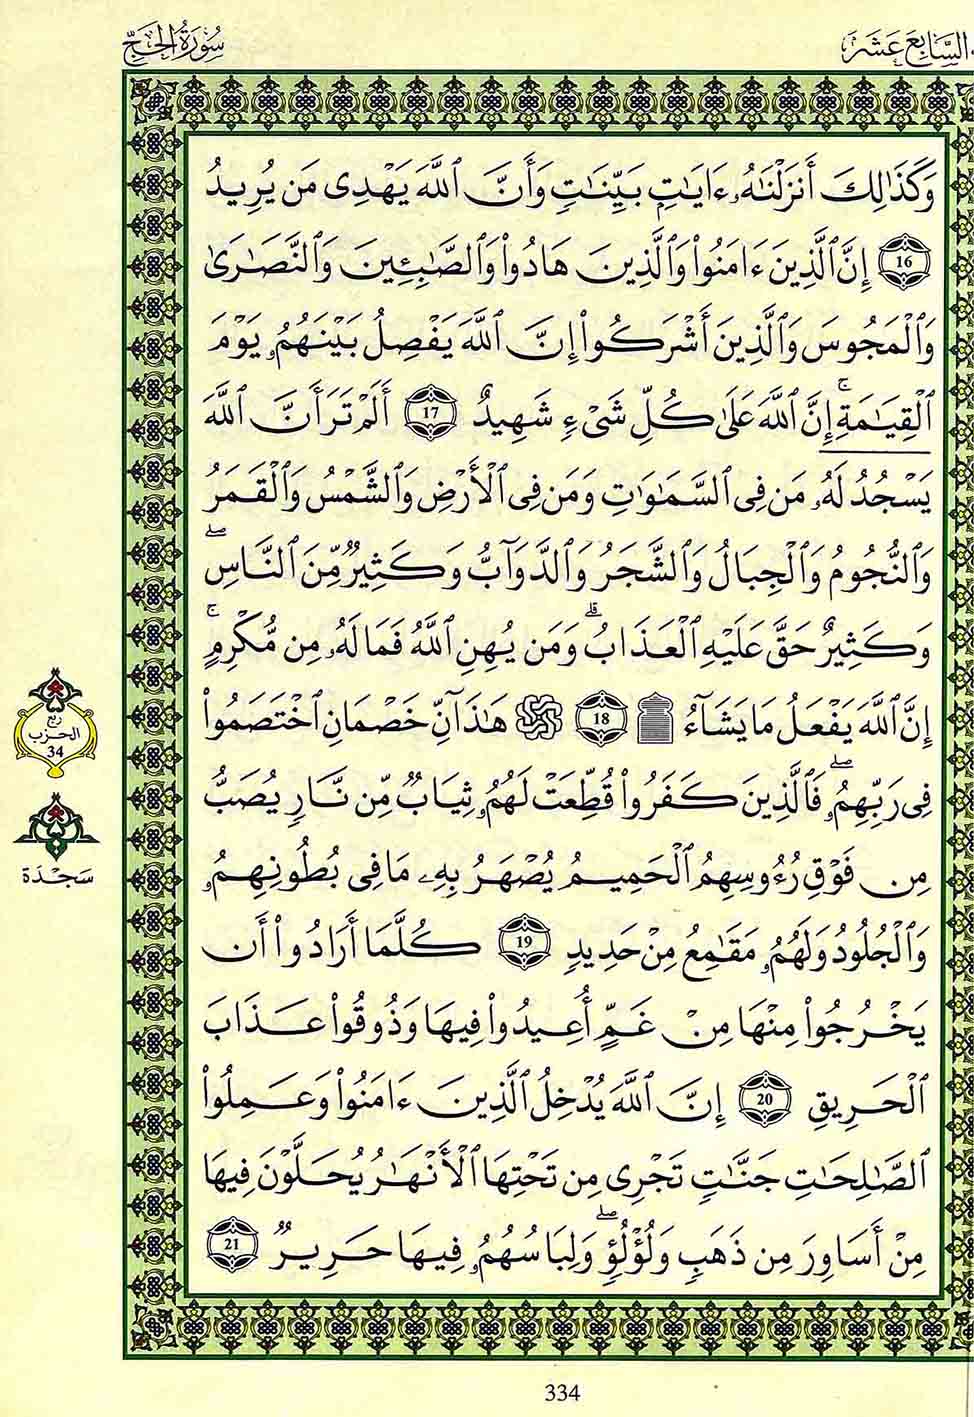 السَّابِعَ عَشَرَ
سُورَةُ الْحَجِّ
وَكَذَٰلِكَ أَنزَلْنَٰهُۥ ءَايَٰتِۭ بَيِّنَٰتٖ وَأَنَّ ٱللَّهَ يَهْدِى مَن يُرِيدُ
16 إِنَّ ٱلَّذِينَ ءَامَنُواْ وَٱلَّذِينَ هَادُواْ وَٱلصَّٰبِـِٔينَ وَٱلنَّصَٰرَىٰ
وَٱلْمَجُوسَ وَٱلَّذِينَ أَشْرَكُواْ إِنَّ ٱللَّهَ يَفْصِلُ بَيْنَهُمُۥ يَوْمَ
ٱلْقِيَٰمَةِۚ إِنَّ ٱللَّهَ عَلَىٰ كُلِّ شَىْءٖ شَهِيدٌ 17 أَلَمْ تَرَ أَنَّ ٱللَّهَ
يَسْجُدُ لَهُۥ مَن فِى ٱلسَّمَٰوَٰتِ وَمَن فِى ٱلْأَرْضِ وَٱلشَّمْسُ وَٱلْقَمَرُ
وَٱلنُّجُومُ وَٱلْجِبَالُ وَٱلشَّجَرُ وَٱلدَّوَآبُّ وَكَثِيرٌ مِّنَ ٱلنَّاسِۖ
وَكَثِيرٌ حَقَّ عَلَيْهِ ٱلْعَذَابُۗ وَمَن يُهِنِ ٱللَّهُ فَمَا لَهُۥ مِن مُّكْرِمٍۚ
إِنَّ ٱللَّهَ يَفْعَلُ مَا يَشَآءُ 18 هَٰذَآنِّ خَصْمَانِ ٱخْتَصَمُواْ
فِى رَبِّهِمُۥۖ فَٱلَّذِينَ كَفَرُواْ قُطِّعَتْ لَهُمُۥ ثِيَابٌ مِّن نَّارٖ يُصَبُّ
مِن فَوْقِ رُءُوسِهِمُ ٱلْحَمِيمُ يُصْهَرُ بِهِۦ مَا فِى بُطُونِهِمُۥ
وَٱلْجُلُودُ وَلَهُمُۥ مَقَٰمِعُ مِنْ حَدِيدٖ 19 كُلَّمَا أَرَادُواْ أَن
يَخْرُجُواْ مِنْهَا مِنْ غَمٍّ أُعِيدُواْ فِيهَا وَذُوقُواْ عَذَابَ
ٱلْحَرِيقِ 20 إِنَّ ٱللَّهَ يُدْخِلُ ٱلَّذِينَ ءَامَنُواْ وَعَمِلُواْ
ٱلصَّٰلِحَٰتِ جَنَّٰتٖ تَجْرِى مِن تَحْتِهَا ٱلْأَنْهَٰرُ يُحَلَّوْنَ فِيهَا
مِنْ أَسَاوِرَ مِن ذَهَبٖ وَلُؤْلُؤٖۖ وَلِبَاسُهُمُۥ فِيهَا حَرِيرٌ 21
ربع
الحزب
34
سَجْدَة
334